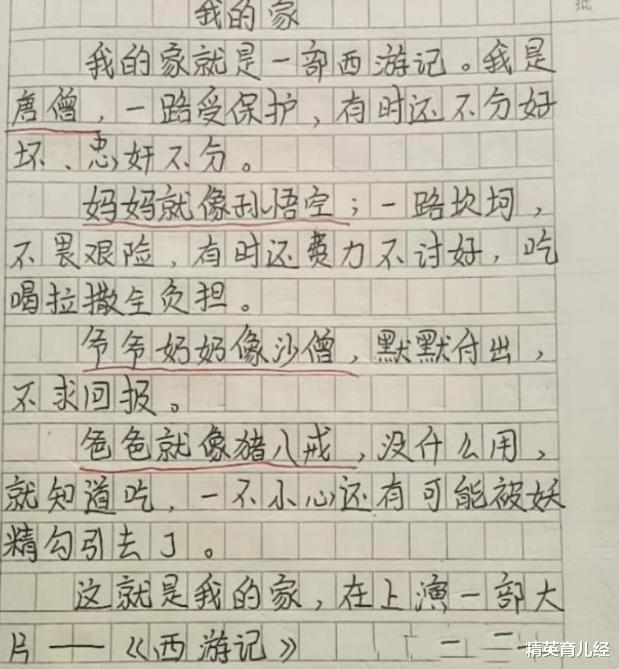 我的家
我的家就是一部西游记。我是
唐僧，一路受保护，有时还不分好
坏、忠奸不分。
妈妈就像孙悟空；一路坎坷，
不畏艰险，有时还费力不讨好，吃
喝拉撒全负担。
爷爷奶奶像沙僧，默默付出，
不求回报。
爸爸就像猪八戒，没什么用，
就知道吃，一不小心还有可能被妖
精勾引去了。
这就是我的家，在上演一部大
片——《西游记》
精英育儿经